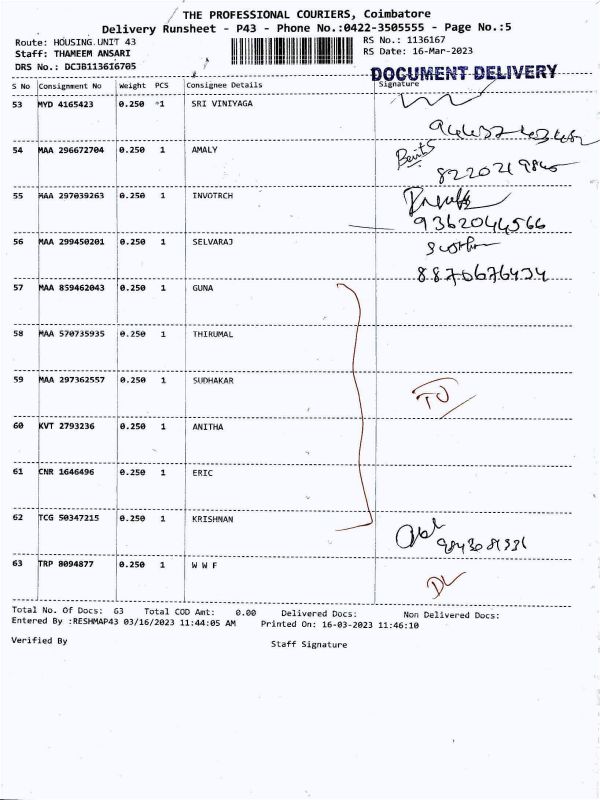 THE PROFESSIONAL COURIERS, Coimbatore
Delivery Runsheet - P43 - Phone No.:0422-3505555 - Page No.:5
Route: HOUSING UNIT 43 RS No.: 1136167
Staff: THAMEEM ANSARI RS Date: 16-Mar-2023
DRS No.: DCJB113616705 DOCUMENT DELIVERY
S No Consignment No Weight PCS Consignee Details Signature
53 MYD 4165423 0.250 1 SRI VINIYAGA
54 MAA 296672704 0.250 1 AMALY
8220219845
55 MAA 297039263 0.250 1 INVOTRCH
9362044566
56 MAA 299450201 0.250 1 SELVARAJ
8870676434
57 MAA 859462043 0.250 1 GUNA
58 MAA 570735935 0.250 1 THIRUMAL
59 MAA 297362557 0.250 1 SUDHAKAR
60 KVT 2793236 0.250 1 ANITHA
61 CNR 1646496 0.250 1 ERIC
62 TCG 50347215 0.250 1 KRISHNAN
63 TRP 8094877 0.250 1 W W F
DL
Total No. Of Docs: 63 Total COD Amt: 0.00 Delivered Docs: Non Delivered Docs:
Entered By :RESHMAP43 03/16/2023 11:44:05 AM Printed On: 16-03-2023 11:46:10
Verified By Staff Signature